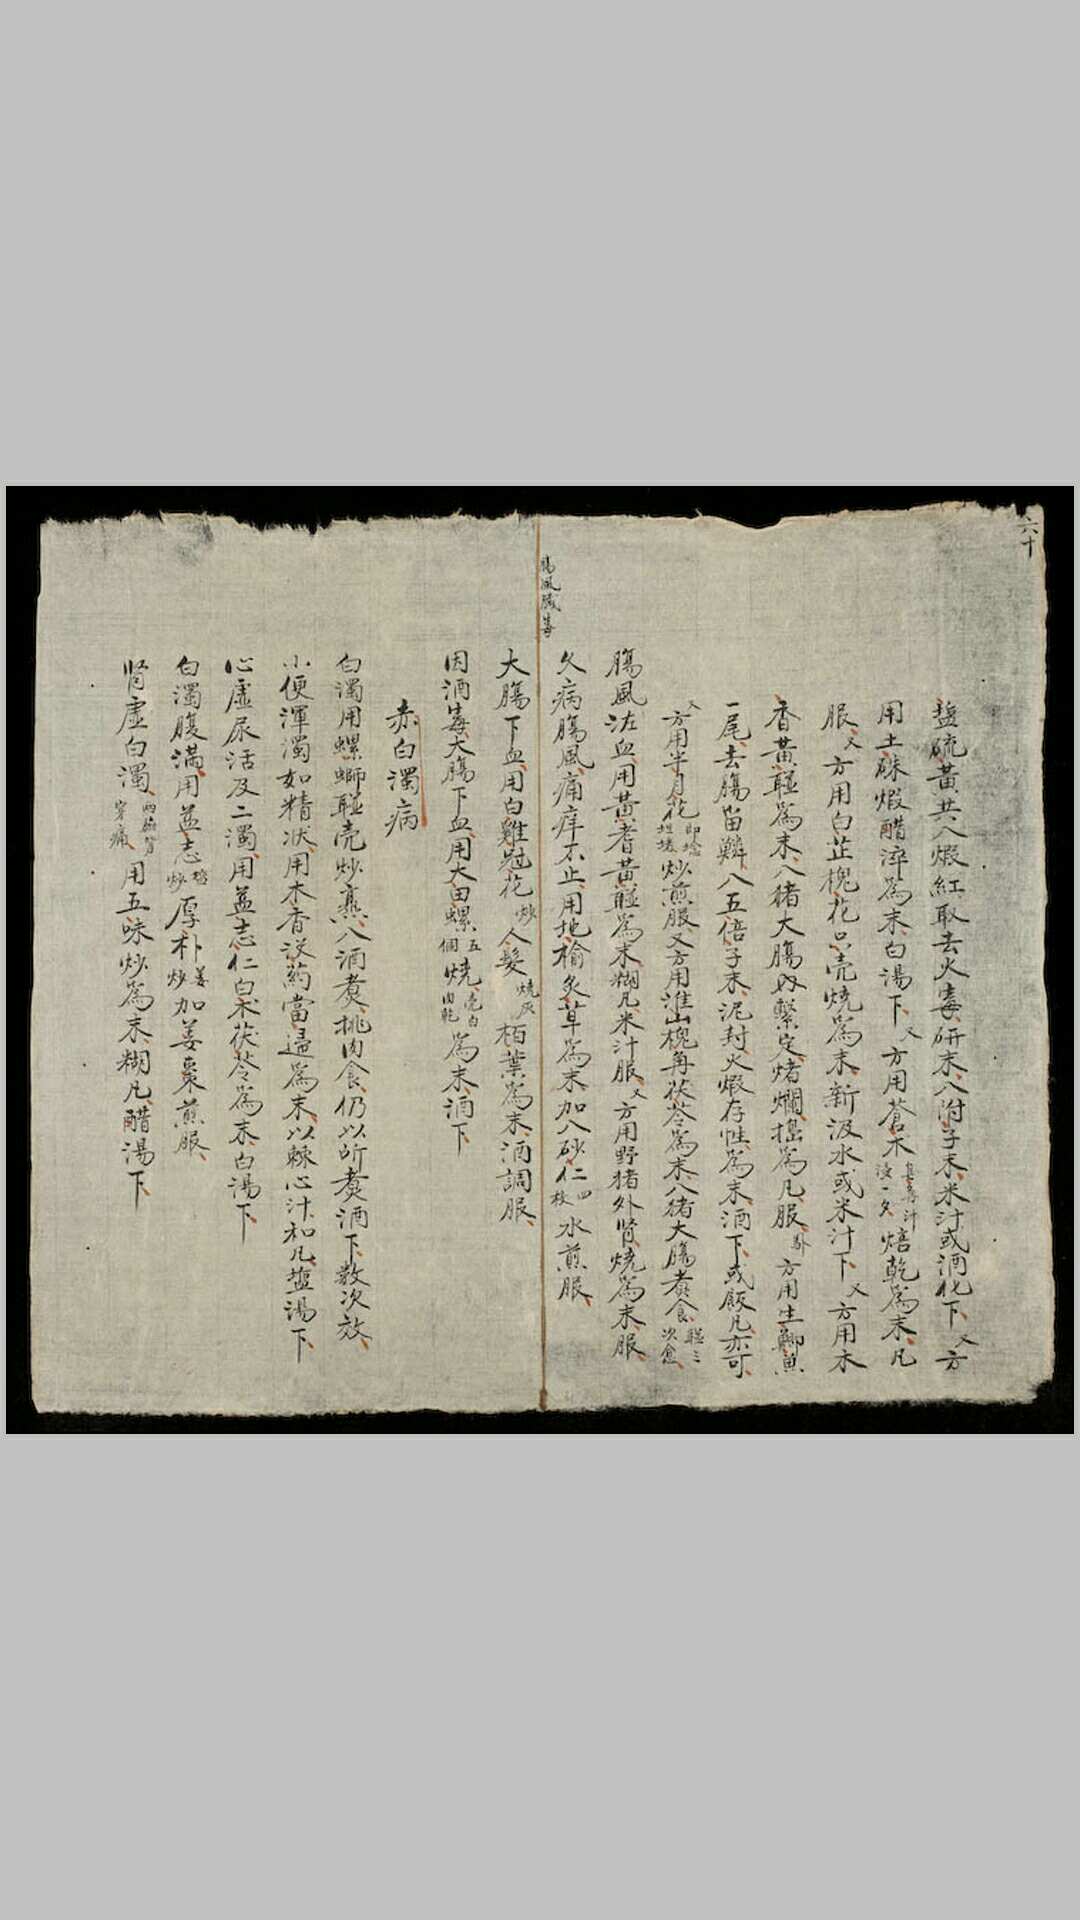 六十
塩硫黄共入煆紅取去火毒研末入附子末米汁或酒化下又方
用土硃煆醋淬爲末白湯下又方用蒼木皂角汁浸一夕焙乾爲末凡
服又方用白芷槐花只壳燒爲末新汲水或米汁下又方用木
香黄連爲末入猪大膓内繫定烤爛搗爲凡服 方用生鯽魚
一尾去膓留鱗入五倍子末泥封火煆存性爲末酒下或飯凡亦可
又方用半月花炒煎服又方用淮山槐角茯苓爲末入猪大膓煮食
膓風泣血用黄耆黄連爲末糊凡米汁服又方用野猪外肾燒爲末服
膓風臟毒
久病膓風痛痒不止用地榆炙草爲末加入砂仁四枚水煎服
大膓下血用白雞冠花炒人髮燒灰栢葉爲末酒調服
因酒毒大膓下血用大田螺五個燒壳白肉乾爲末酒下
赤白濁病
白濁用螺螄連壳炒熏入酒煮挑肉食仍以所煮酒下数次效
小便渾濁如精状用木香没药當归爲末以棘心汁和凡塩湯下
心虛尿活及二濁用益志仁白术茯苓爲末白湯下
白濁腹滿用益志塩炒厚朴姜炒加姜棗煎服
肾虛白濁両腧背穿痛用五味炒爲末糊凡醋湯下